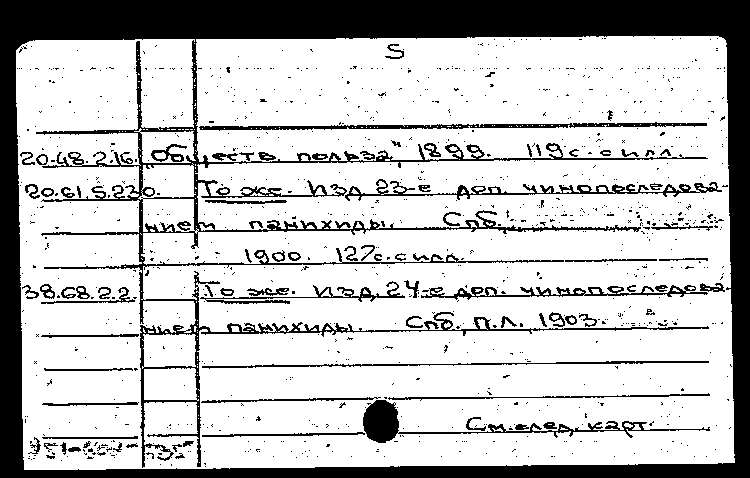 5
20.48.2.16. „Обществ. польза", 1899. 119 с. с илл.
20.61.5.230. То же. Изд. 23-е доп. чинопоследова-
нием панихиды. Спб.
1900. 127 с. с илл.
38.68.2.2. То же. Изд. 24-е доп. чинопоследова-
нием панихиды. Спб., П.Л., 1903.
См. след. карт.